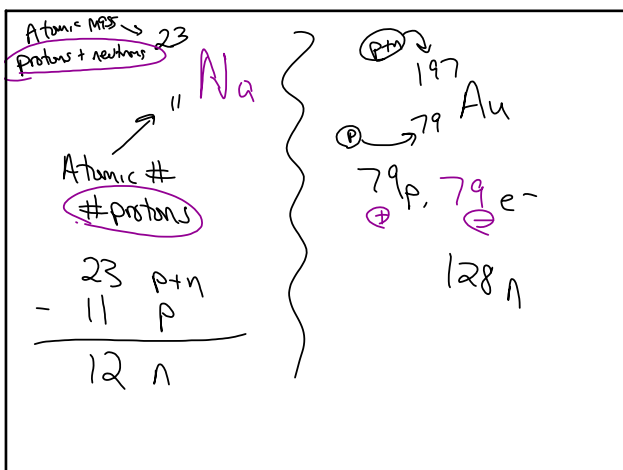 Atomic mass → 23
protons + neutrons
11 Na
Atomic #
# protons
23 p+n
- 11 p
12 n
p+n
197
p 79 Au
79p, 79 e-
+ −
128 n